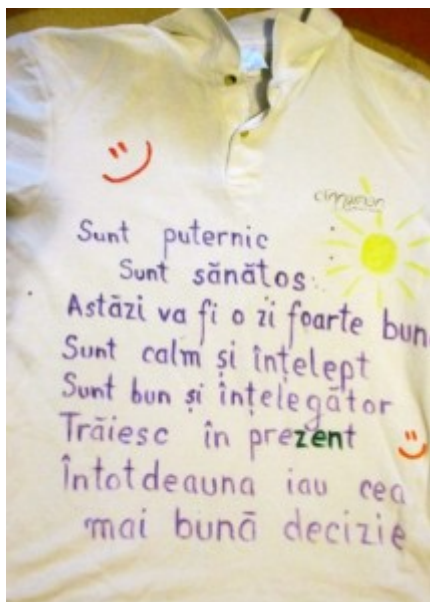 cinnamon
Sunt puternic
Sunt sănătos
Astăzi va fi o zi foarte bun
Sunt calm și înțelept
Sunt bun și înțelegător
Trăiesc în prezent
Întotdeauna iau cea
mai bună decizie